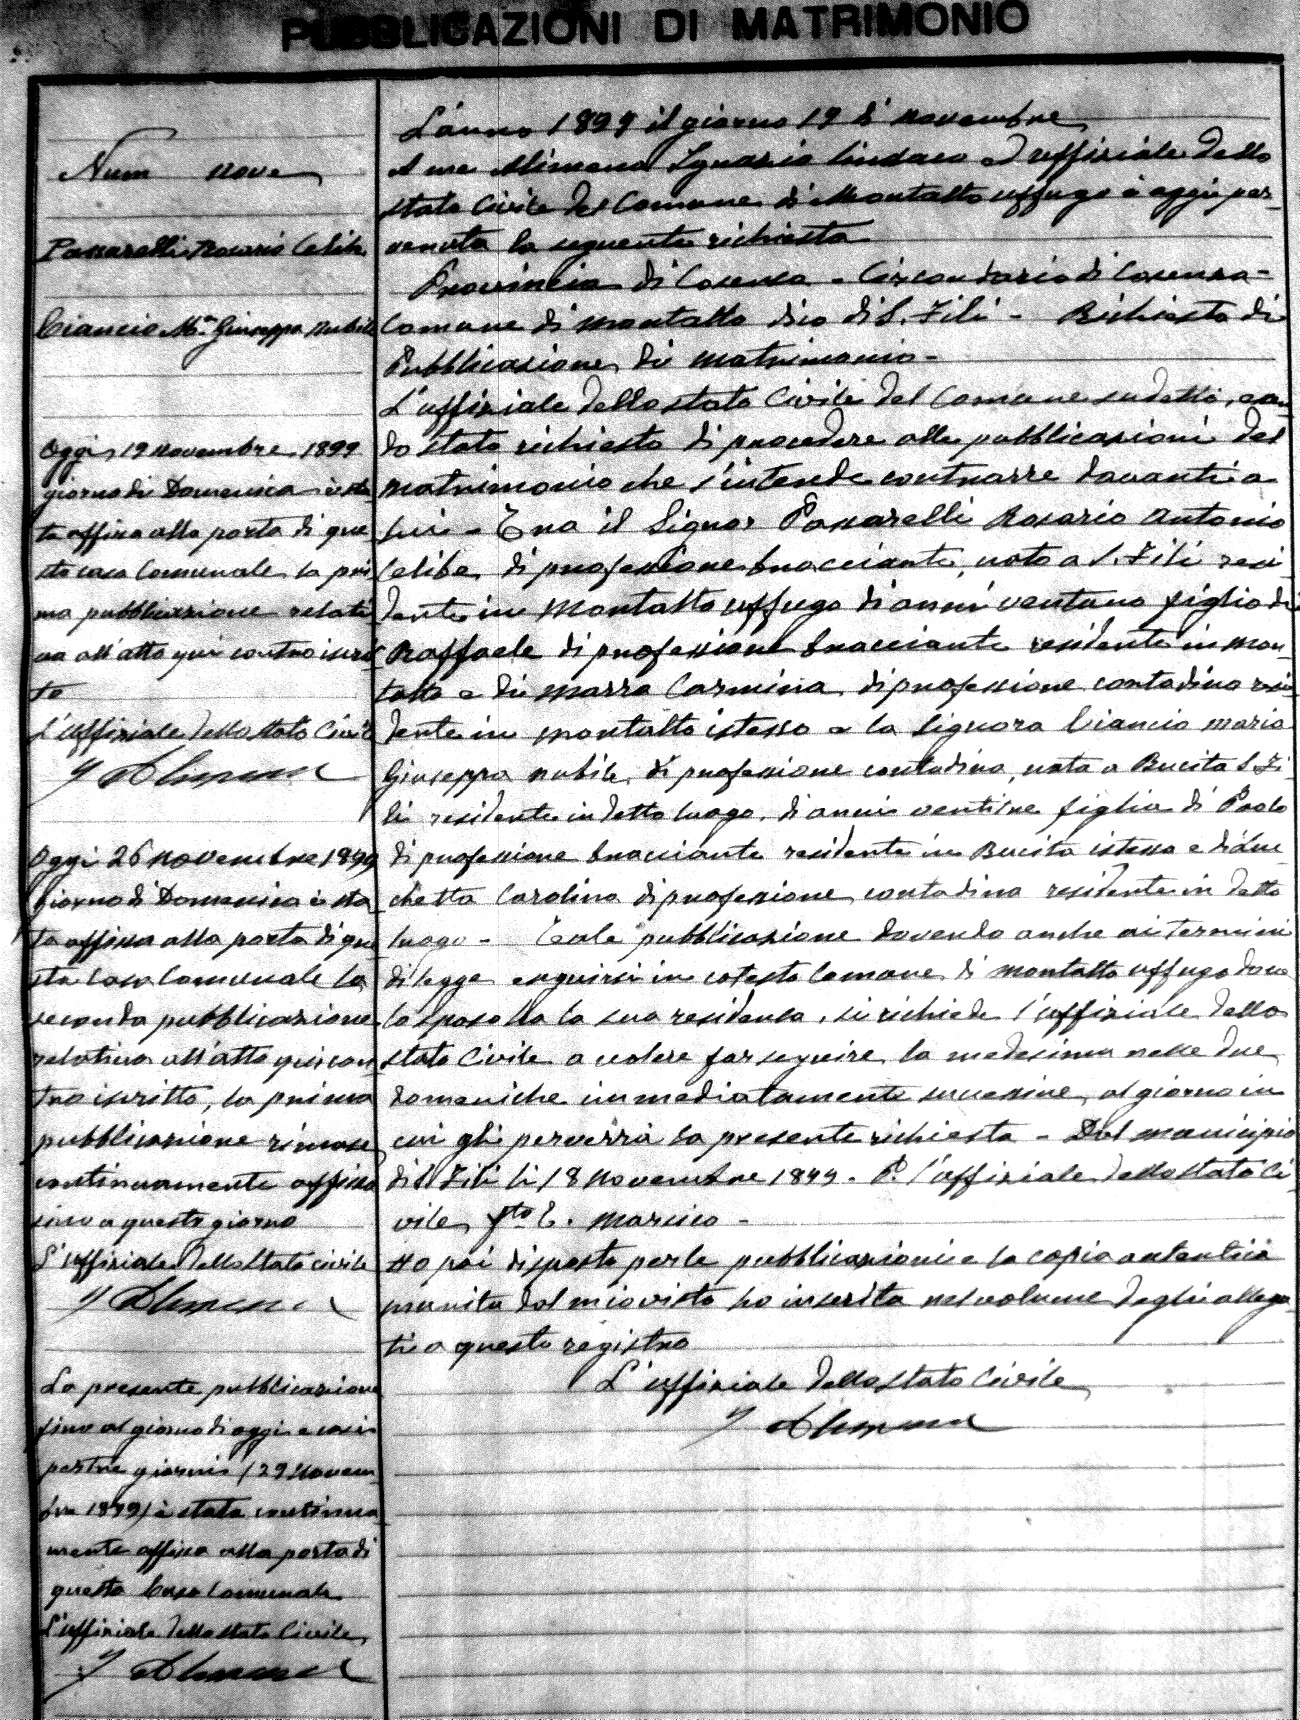 PUBBLICAZIONI DI MATRIMONIO
Num nove
Passarelli Rosario Celibe
Ciancio Ma Giuseppa nubile
Oggi 19 novembre 1899
giorno di Domenica è sta
ta affissa alla porta di que
sta casa Comunale la pri
ma pubblicazione relati
va all'atto qui contro iscrit
to
L'uffiziale dello stato Civile
Oggi 26 novembre 1899
giorno di Domenica è sta
ta affissa alla porta di que
sta Casa Comunale la
seconda pubblicazione
relativa all'atto qui con
tro iscritto, la prima
pubblicazione rimase
continuamente affissa
sino a questo giorno
L'uffiziale dello stato civile
La presente pubblicazione
fino al giorno di oggi e così
per tre giorni (29 Novem
bre 1899) è stata continua
mente affissa alla porta di
questa Casa Comunale
L'uffiziale dello stato Civile
L'anno 1899 il giorno 19 di novembre
A me Alimena Ignazio Sindaco ed uffiziale dello
stato Civile del Comune di Montalto uffugo è oggi per-
venuta la seguente richiesta
Provincia di Cosenza - Circondario di Cosenza -
Comune di S. Fili - Richiesta di
Pubblicazione di matrimonio -
L'uffiziale dello stato Civile del Comune sudetto, essen
do stato richiesto di procedere alle pubblicazioni del
matrimonio che s'intende contrarre davanti a
lui - Tra il Signor Passarelli Rosario Antonio
Celibe, di professione bracciante, nato a S. Fili resi
dente in Montalto uffugo di anni ventuno figlio di
Raffaele di professione bracciante residente in Mon-
talto e di Marra Carmina di professione contadina resi
dente in montalto istesso e la Signora Ciancio maria
Giuseppa nubile, di professione contadina, nata a Bucita S. Fi-
li residente in detto luogo, di anni ventitre figlia di Paolo
di professione bracciante residente in Bucita istessa e di Lu-
chetta Carolina di professione contadina residente in detto
luogo - Tale pubblicazione dovendo anche ai termini
di legge eseguirsi in cotesto Comune di montalto uffugo dove
lo sposo ha la sua residenza, si richiede l'uffiziale dello
stato Civile a volere far seguire la medesima nelle due
domeniche immediatamente successive al giorno in
cui gli perverrà la presente richiesta - Dal municipio
di S. Fili li 18 Novembre 1899 - P. l'uffiziale dello stato Ci
vile fto E. Marsico -
Ho poi disposto per le pubblicazioni e la copia autentica
munita dal mio visto ho inserita nel volume degli allega
ti a questo registro
L'uffiziale dello stato Civile
I Alimena